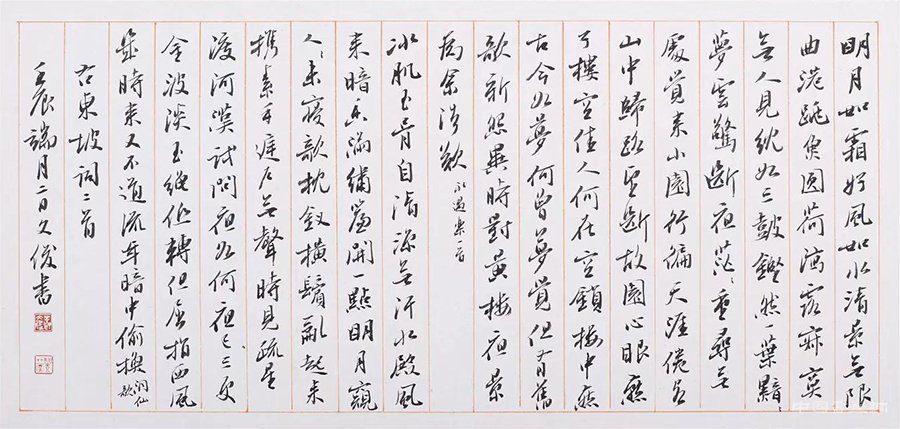 明月如霜好風如水清景無限
曲港跳魚圓荷瀉露寂寞
無人見紞如三鼓鏗然一葉黯〻
夢雲驚斷夜茫〻重尋無
處覺來小園行徧天涯倦客
山中歸路望斷故園心眼燕
子樓空佳人何在空鎖樓中燕
古今如夢何曾夢覺但有舊
歡新怨異時對黃樓夜景
為余浩歎 永遇樂一首
冰肌玉骨自清涼無汗水殿風
來暗香滿繡簾開一點明月窺
人〻未寢欹枕釵橫鬢亂起來
攜素手庭戶無聲時見疏星
渡河漢試問夜如何夜已三更
金波淡玉繩低轉但屈指西風
幾時來又不道流年暗中偷換 洞仙歌
右東坡詞二首
壬辰端月二日久俊書